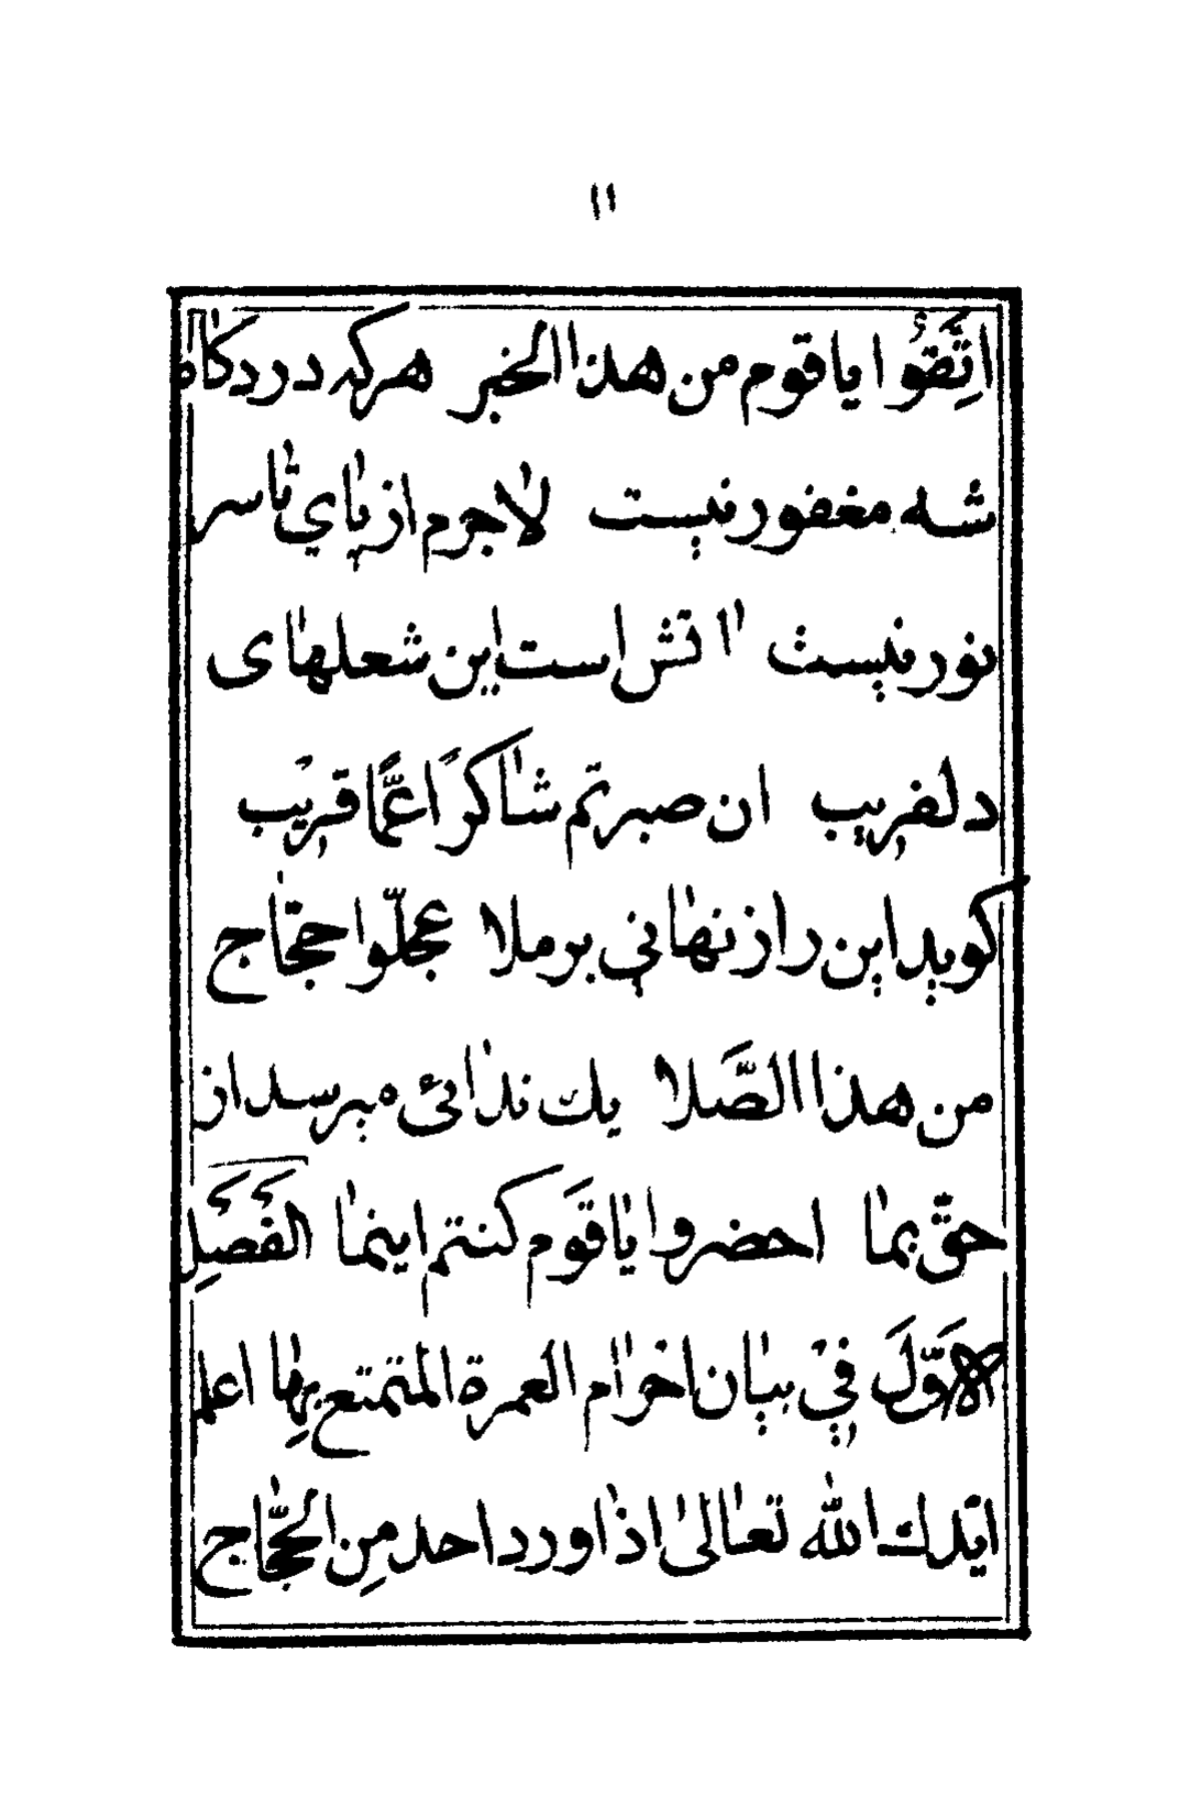 ١١
اتَّقوُا يا قوم من هذا الخبر هر كه در دركاه
شه مغفور نيست لاجرم از پاي تا سر
نور نيست اتش است اين شعلهاى
دلفريب ان صبرتم شاكرًا عمَّا قريب
كويد اين راز نهاني بر ملا عجلّوا حجّاج
من هذا الصَّلا يك ندائئ ميرسد از
حقّ بما احضروا يا قوم كنتم اينما الفَصَلِ
الاوَّلَ في بيان احرام العمرة المتمتع بها اعلم
ايّدك الله تعالى اذا ورد احد مِن الحُجّاج